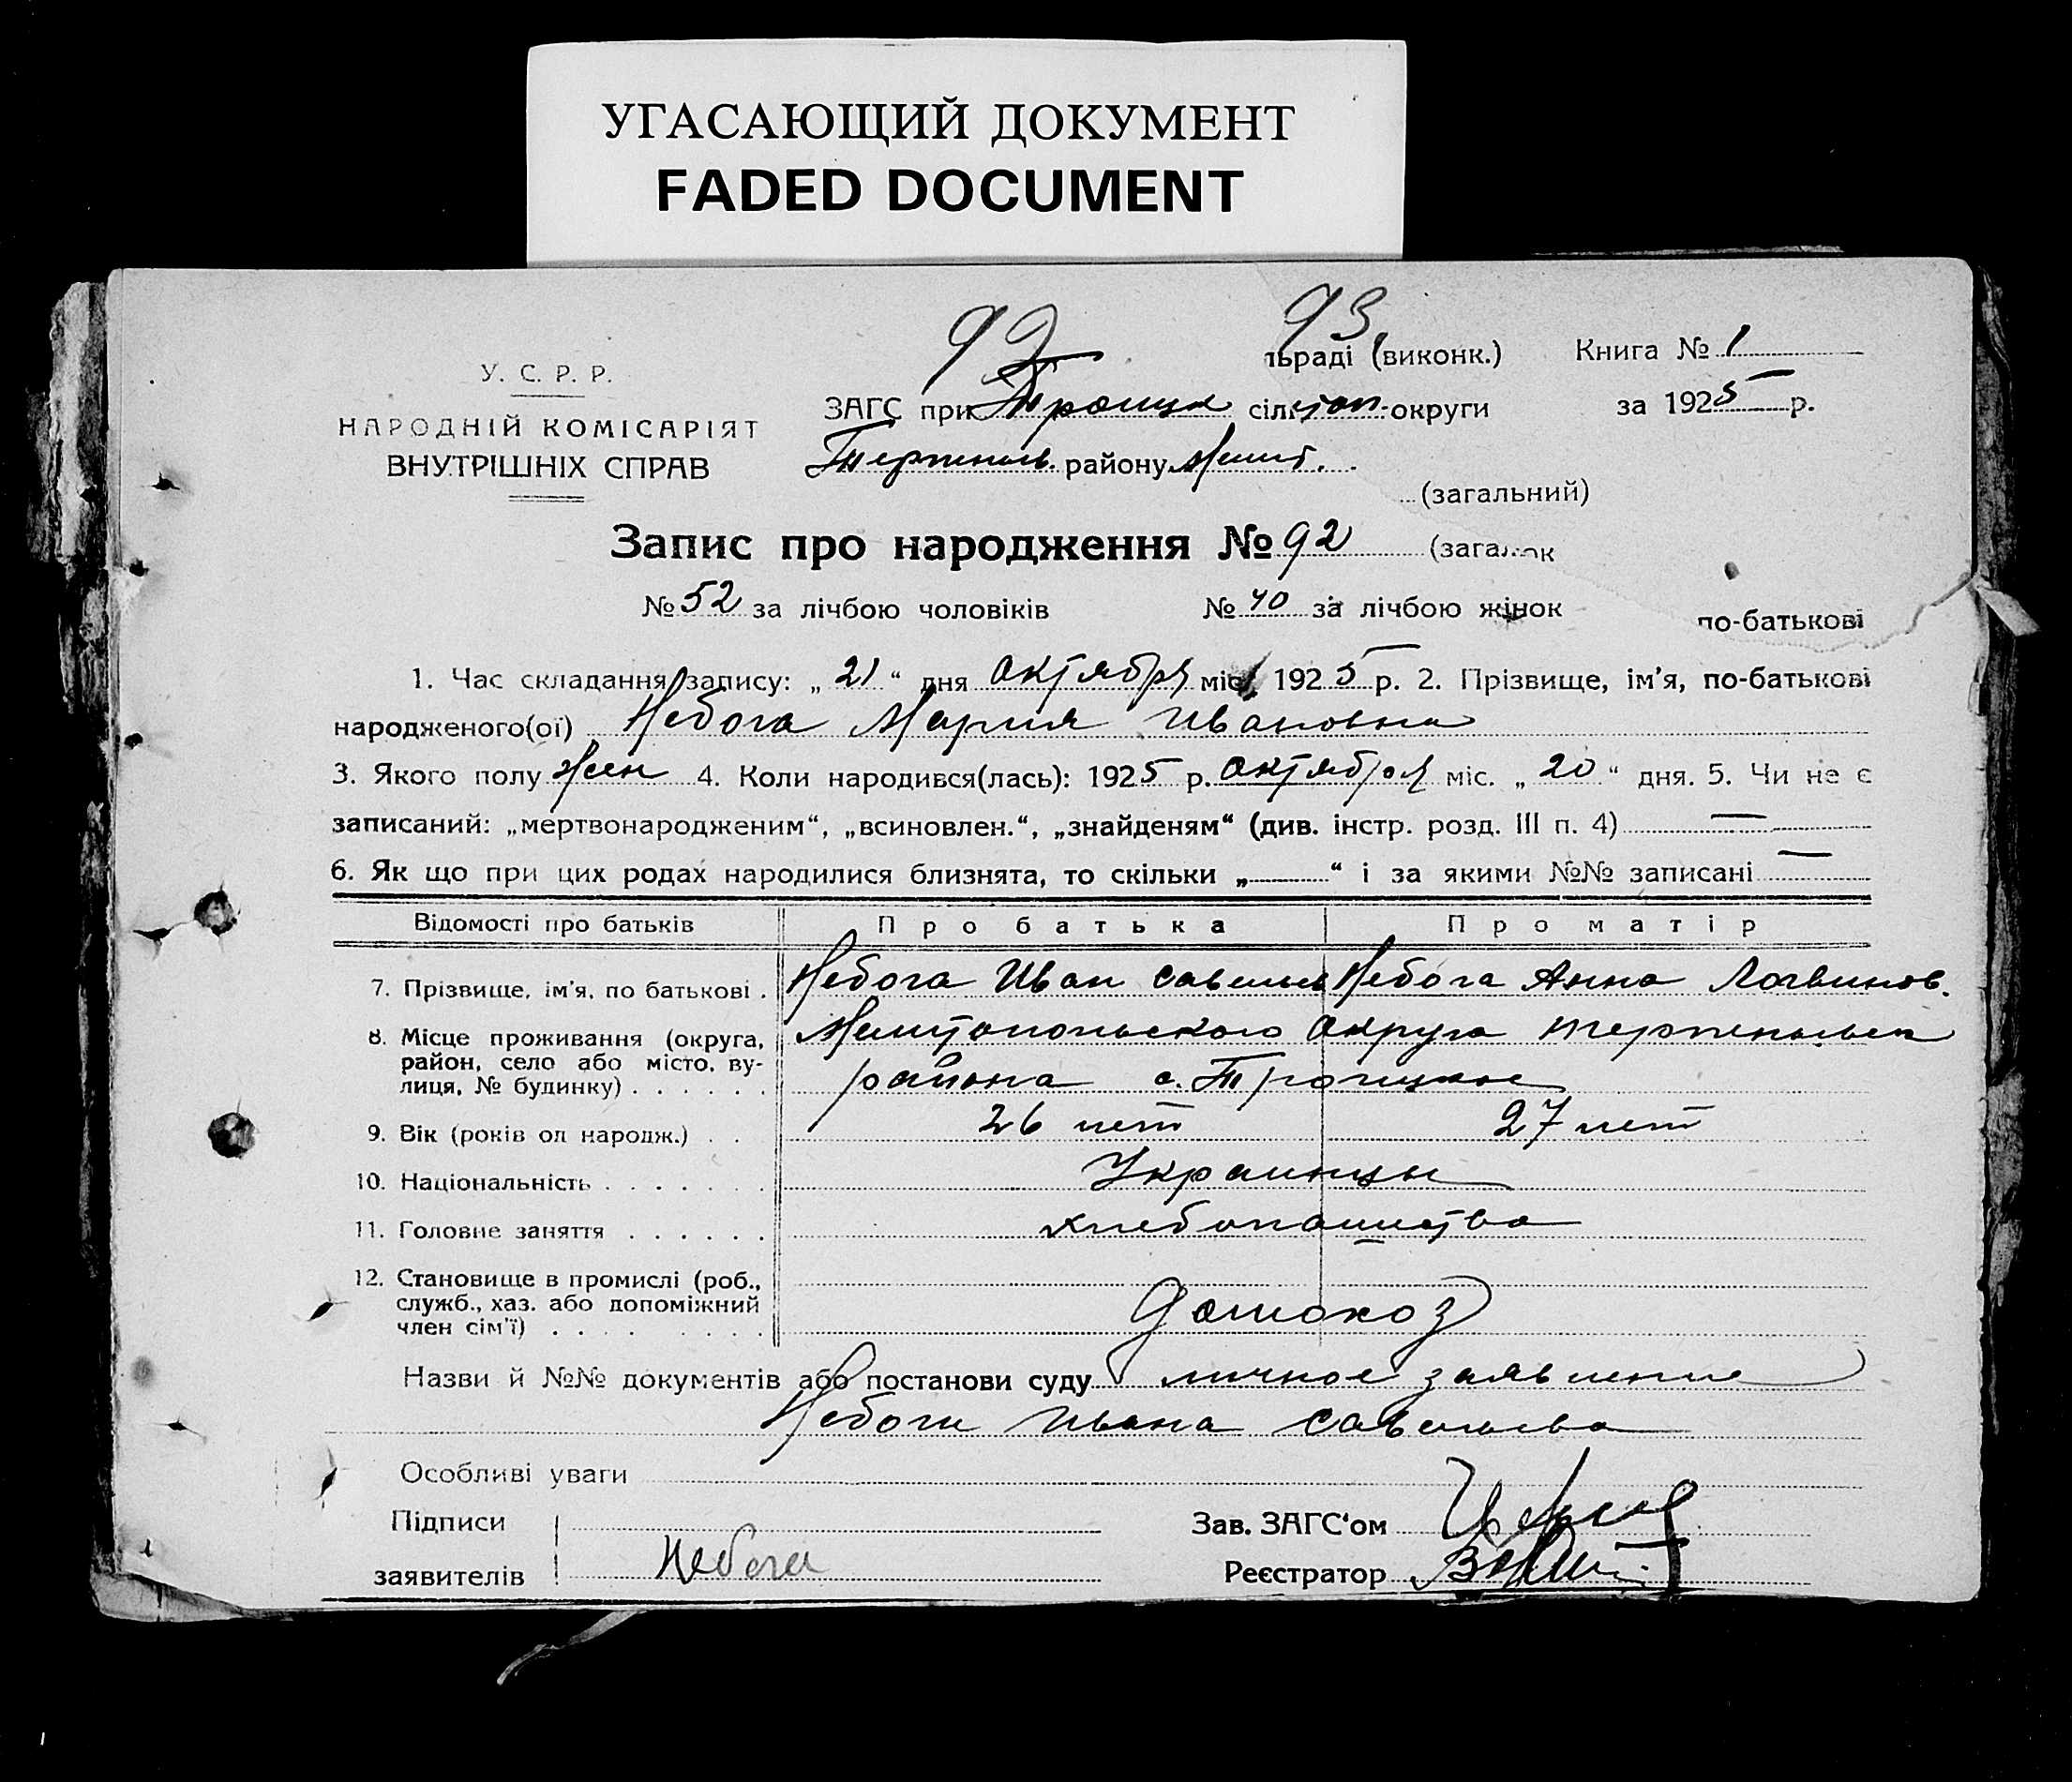 УГАСАЮЩИЙ ДОКУМЕНТ
FADED DOCUMENT
92 93
У. С. Р. Р.
НАРОДНІЙ КОМІСАРІЯТ
ВНУТРІШНІХ СПРАВ
льраді (виконк.)
ЗАГС при Троицк сіль топ. округи
Терпеньев. району Мелит.
Книга № 1
за 1925 р.
(загальний)
Запис про народження № 92 (загал
№ 52 за лічбою чоловіків № 40 за лічбою жінок
по-батькові
1. Час складання запису: „21“ дня октября міс. 1925 р. 2. Прізвище, ім'я, по-батькові
народженого(ої) Небога Мария Ивановна
3. Якого полу жен 4. Коли народився(лась): 1925 р. октября міс. „20“ дня. 5. Чи не є
записаний: „мертвонародженим“, „всиновлен.“, „знайденям“ (див. інстр. розд. III п. 4) —
6. Як що при цих родах народилися близнята, то скільки „—“ і за якими №№ записані —
Відомості про батьків Про батька Про матір
7. Прізвище, ім'я, по батькові . Небога Иван Савельев Небога Анна Логвинов.
8. Місце проживання (округа, район, село або місто, вулиця, № будинку) . . . . . . Мелитопольского округа Терпеньевск
района с. Троицкое
9. Вік (років од народж.) . . 26 лет 27 лет
10. Національність . . . . . . . Украинцы
11. Головне заняття . . . . . . хлебопашество
12. Становище в промислі (роб., служб., хаз. або допоміжний член сім'ї) . . . . . . . . домохоз
Назви й №№ документів або постанови суду личное заявление
Небоги Ивана Савельева
Особливі уваги
Підписи
заявителів Небога
Зав. ЗАГС'ом
Реєстратор